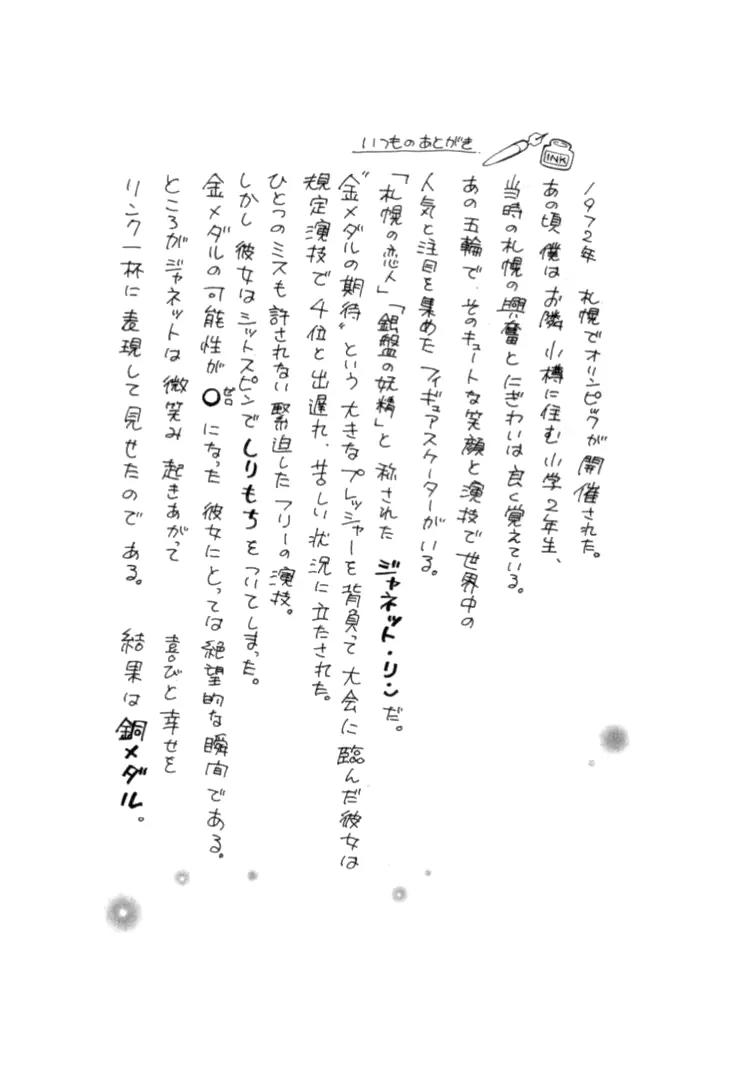 いつものあとがき
INK
1972年 札幌でオリンピックが開催された。
あの頃 僕は お隣 小樽に住む 小学2年生、
当時の札幌の興奮と にぎわいは 良く覚えている。
あの五輪で、そのキュートな笑顔と演技で世界中の
人気と注目を集めた フィギュアスケーターがいる。
「札幌の恋人」「銀盤の妖精」と 称された ジャネット・リンだ。
"金メダルの期待" という 大きなプレッシャーを 背負って 大会に 臨んだ彼女は
規定演技で 4位と出遅れ、苦しい状況に立たされた。
ひとつのミスも許されない 緊迫したフリーの演技。
しかし 彼女は シットスピンで しりもちを ついてしまった。
金メダルの可能性が 〇ゼロ になった 彼女にとっては 絶望的な瞬間である。
ところがジャネットは 微笑み 起きあがって 喜びと幸せを
リンク一杯に表現して見せたのである。 結果は 銅メダル。